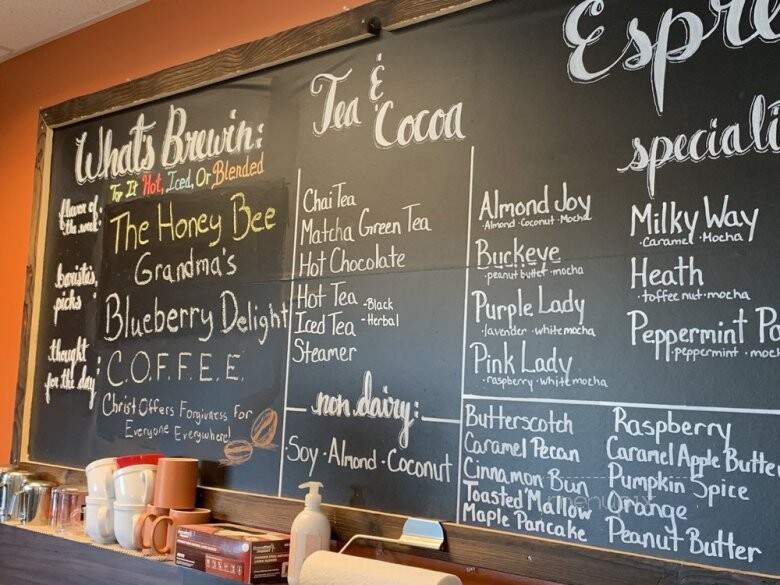 What's Brewin:
Try It Hot, Iced, Or Blended
flavor of the week:
The Honey Bee
barista's picks:
Grandma's
Blueberry Delight
thought for the day:
C.O.F.F.E.E.
Christ Offers Forgivness For
Everyone Everywhere!
Tea & Cocoa
Chai Tea
Matcha Green Tea
Hot Chocolate
Hot Tea -Black
Iced Tea -Herbal
Steamer
non dairy:
Soy · Almond · Coconut
Espre
speciali
Almond Joy
·Almond·Coconut·Mocha
Buckeye
·peanut butter·mocha
Purple Lady
·lavender·white mocha
Pink Lady
·raspberry·white mocha
Milky Way
·Caramel·Mocha
Heath
·toffee nut·mocha
Peppermint Pa
·peppermint·moc
Butterscotch
Caramel Pecan
Cinnamon Bun
Toasted Mallow
Maple Pancake
Raspberry
Caramel Apple Butte
Pumpkin Spice
Orange
Peanut Butter